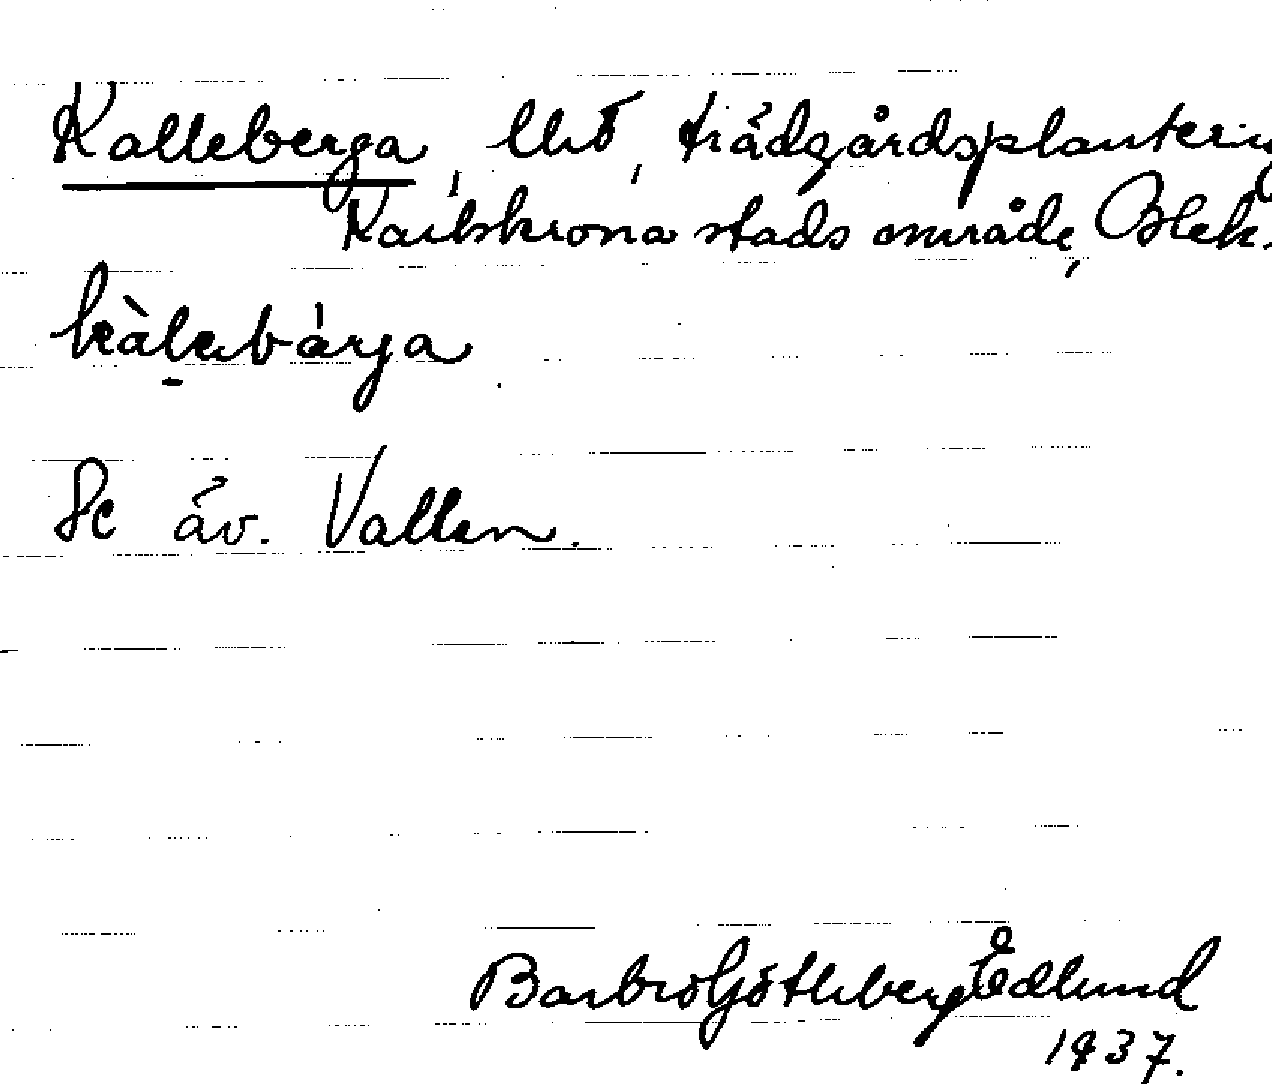 Kalleberga, lhö, trädgårdsplantering
Karlskrona stads område, Blek.
kàlebárja
Se äv. Vallen.
Barbro Götheberg Edlund
1937.